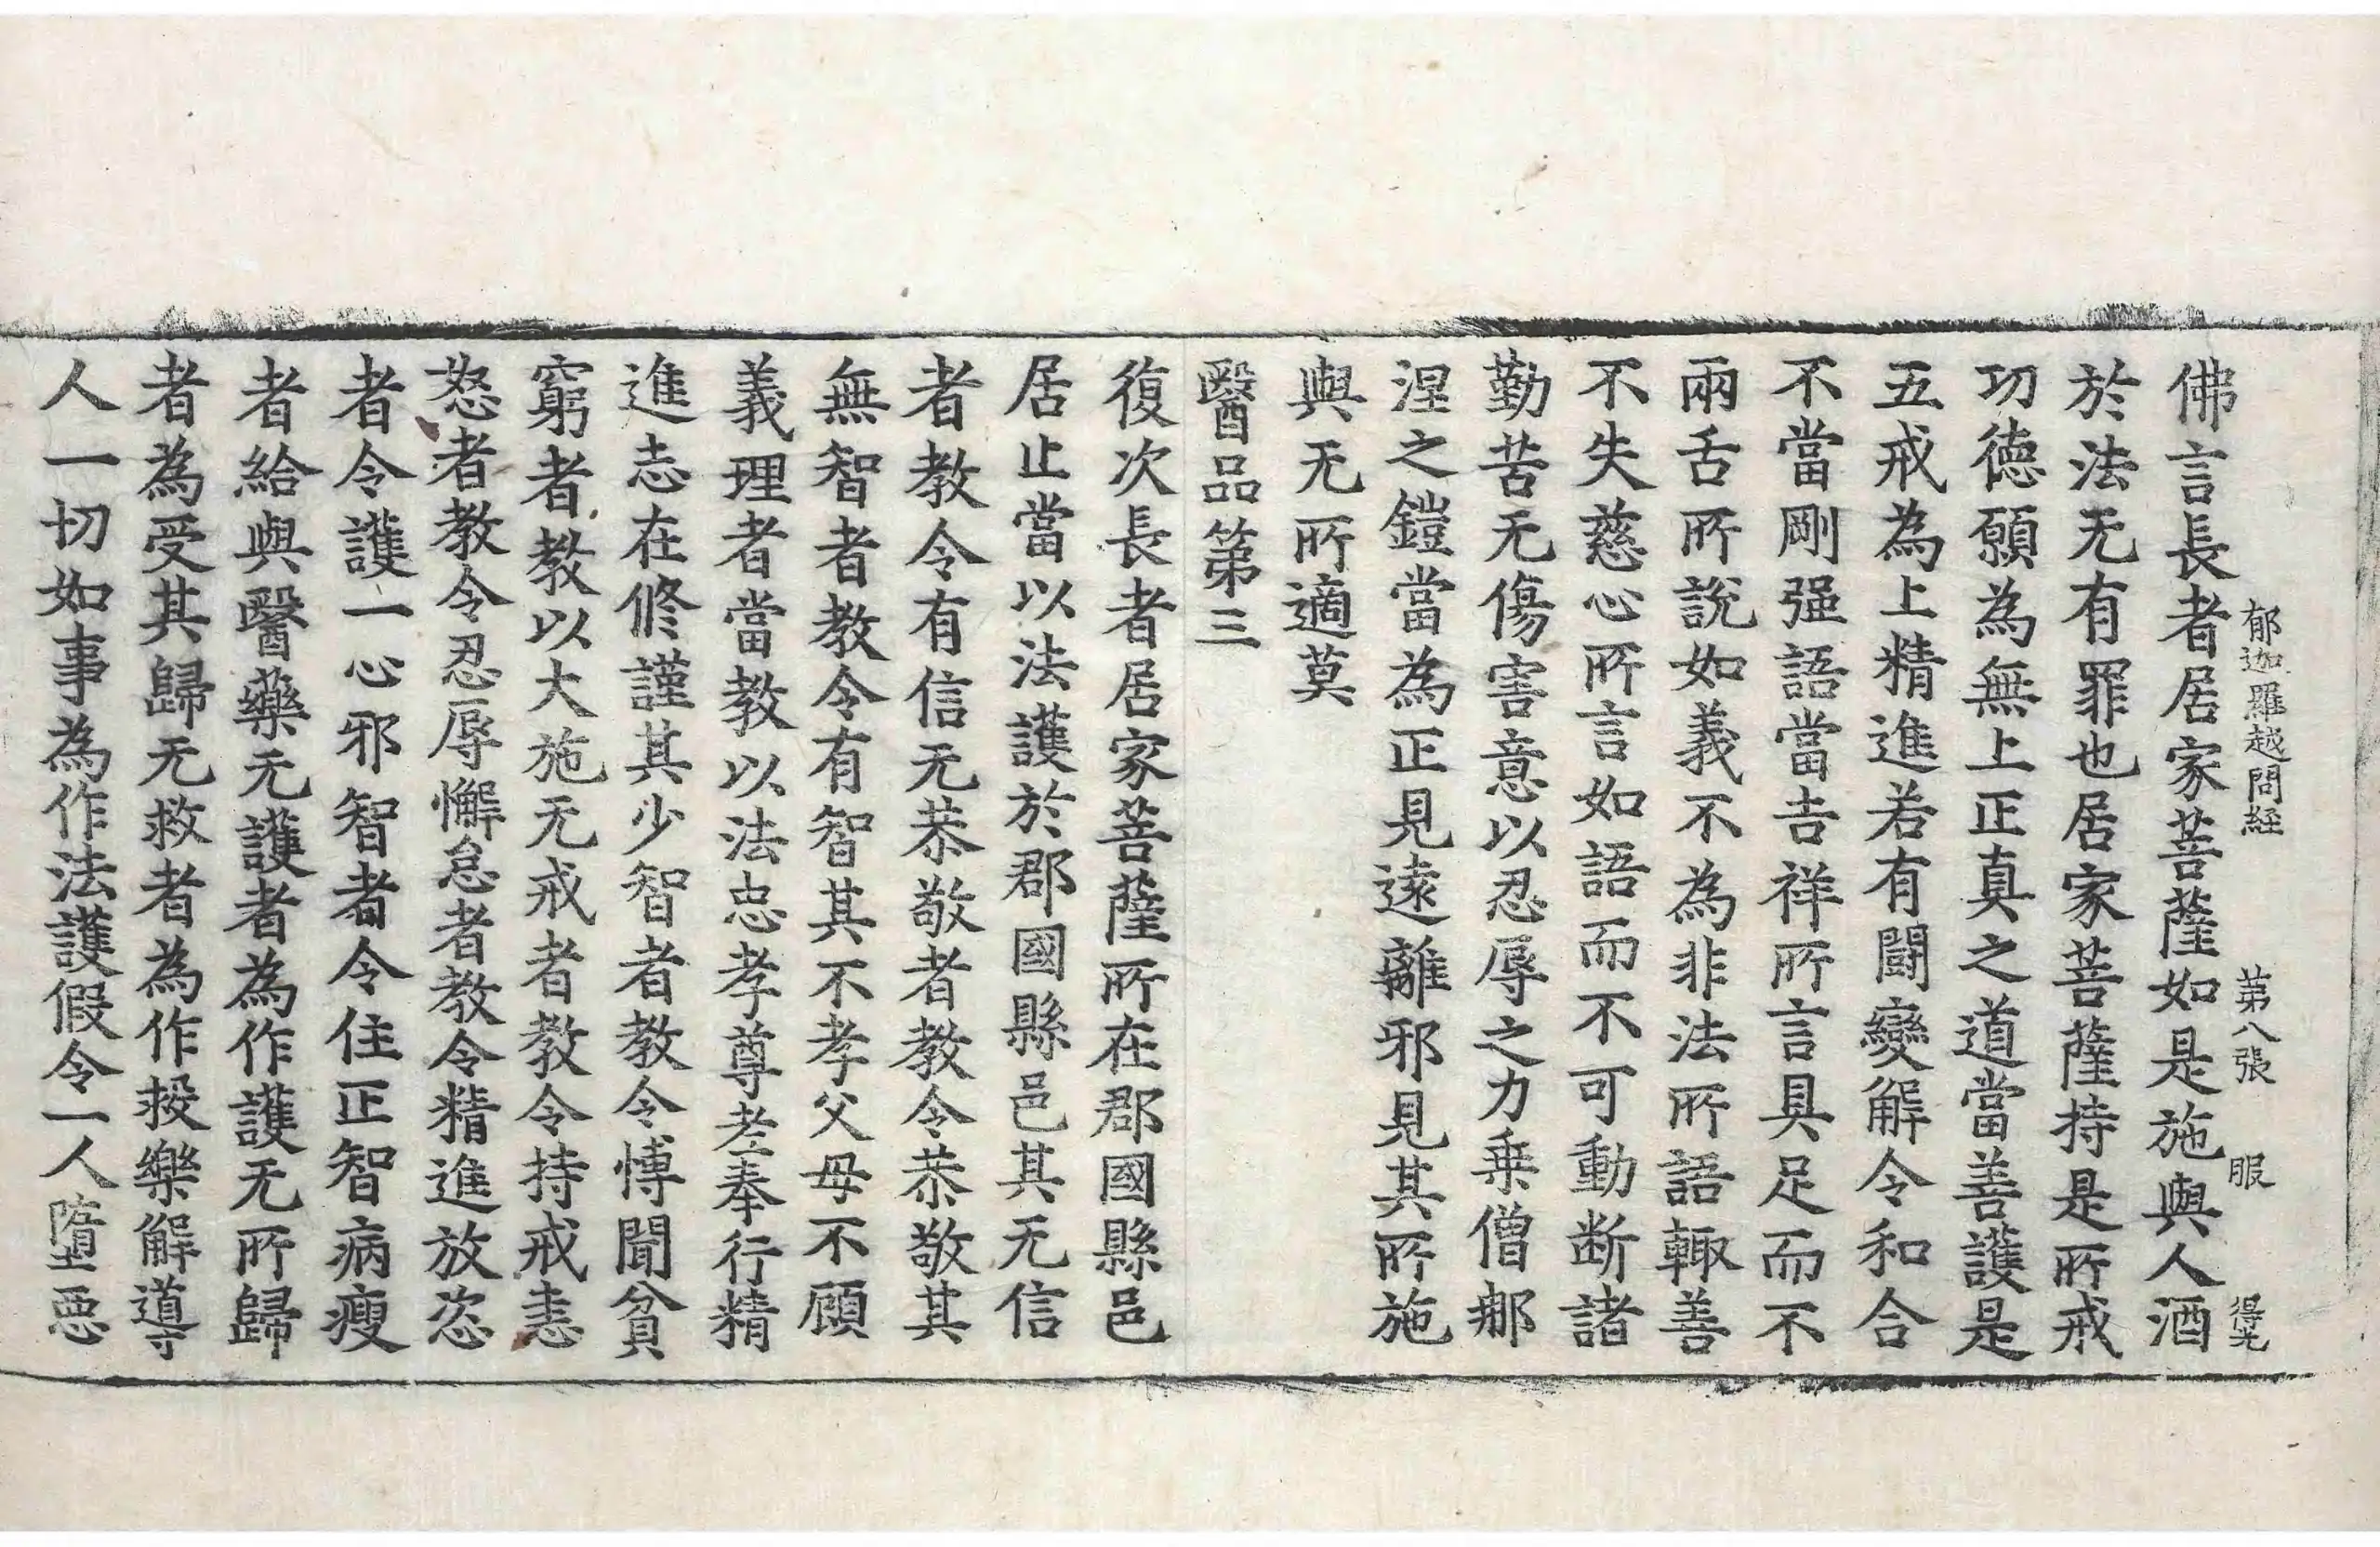 郁迦羅越問經　第八張　服　得光
佛言長者居家菩薩如是施與人酒
於法无有罪也居家菩薩持是所戒
功德願為無上正真之道當善護是
五戒為上精進若有鬪變解令和合
不當剛强語當吉祥所言具足而不
兩舌所說如義不為非法所語輙善
不失慈心所言如語而不可動断諸
勤苦无傷害意以忍辱之力乗僧那
涅之鎧當為正見遠離邪見其所施
與无所適莫
醫品第三
復次長者居家菩薩所在郡國縣邑
居止當以法護於郡國縣邑其无信
者教令有信无恭敬者教令恭敬其
無智者教令有智其不孝父母不顧
義理者當教以法忠孝尊孝奉行精
進志在修謹其少智者教令愽聞貧
窮者教以大施无戒者教令持戒恚
怒者教令忍辱懈怠者教令精進放恣
者令護一心邪智者令住正智病瘦
者給與醫藥无護者為作護无所歸
者為受其歸无救者為作救樂解導
人一切如事為作法護假令一人墮惡